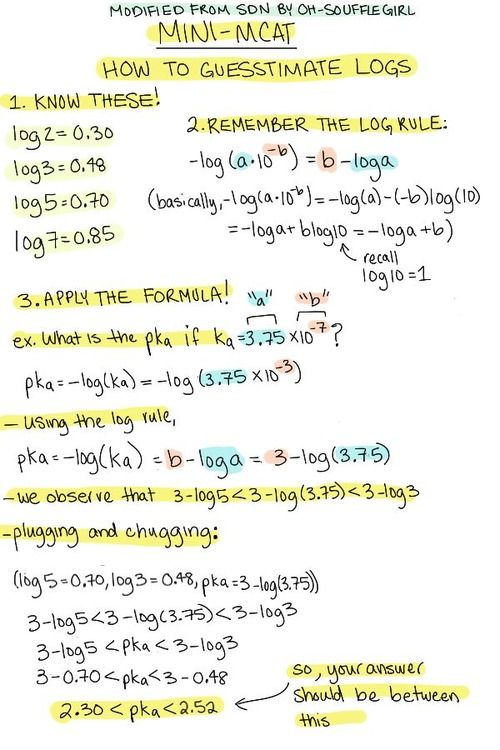 MODIFIED FROM SDN BY OH-SOUFFLEGIRL
MINI-MCAT
HOW TO GUESSTIMATE LOGS
1. KNOW THESE!
log2=0.30
log3=0.48
log5=0.70
log7=0.85
2.REMEMBER THE LOG RULE:
-log(a·10⁻ᵇ) = b -loga
(basically,-log(a·10⁻ᵇ)=-log(a)-(-b)log(10)
=-loga+blog10 =-loga+b)
recall
log10=1
3. APPLY THE FORMULA! "a" "b"
ex. What is the pka if Ka=3.75 ×10⁻⁷?
pka=-log(Ka) = -log (3.75 ×10⁻³)
- Using the log rule,
pka=-log(Ka) = b-loga = 3-log(3.75)
-we observe that 3-log5<3-log(3.75)<3-log3
-plugging and chugging:
(log5=0.70,log3=0.48,pka=3-log(3.75))
3-log5<3-log(3.75)<3-log3
3-log5 <pka < 3-log3
3-0.70 <pka<3-0.48
2.30 < pka < 2.52
so, your answer
should be between
this